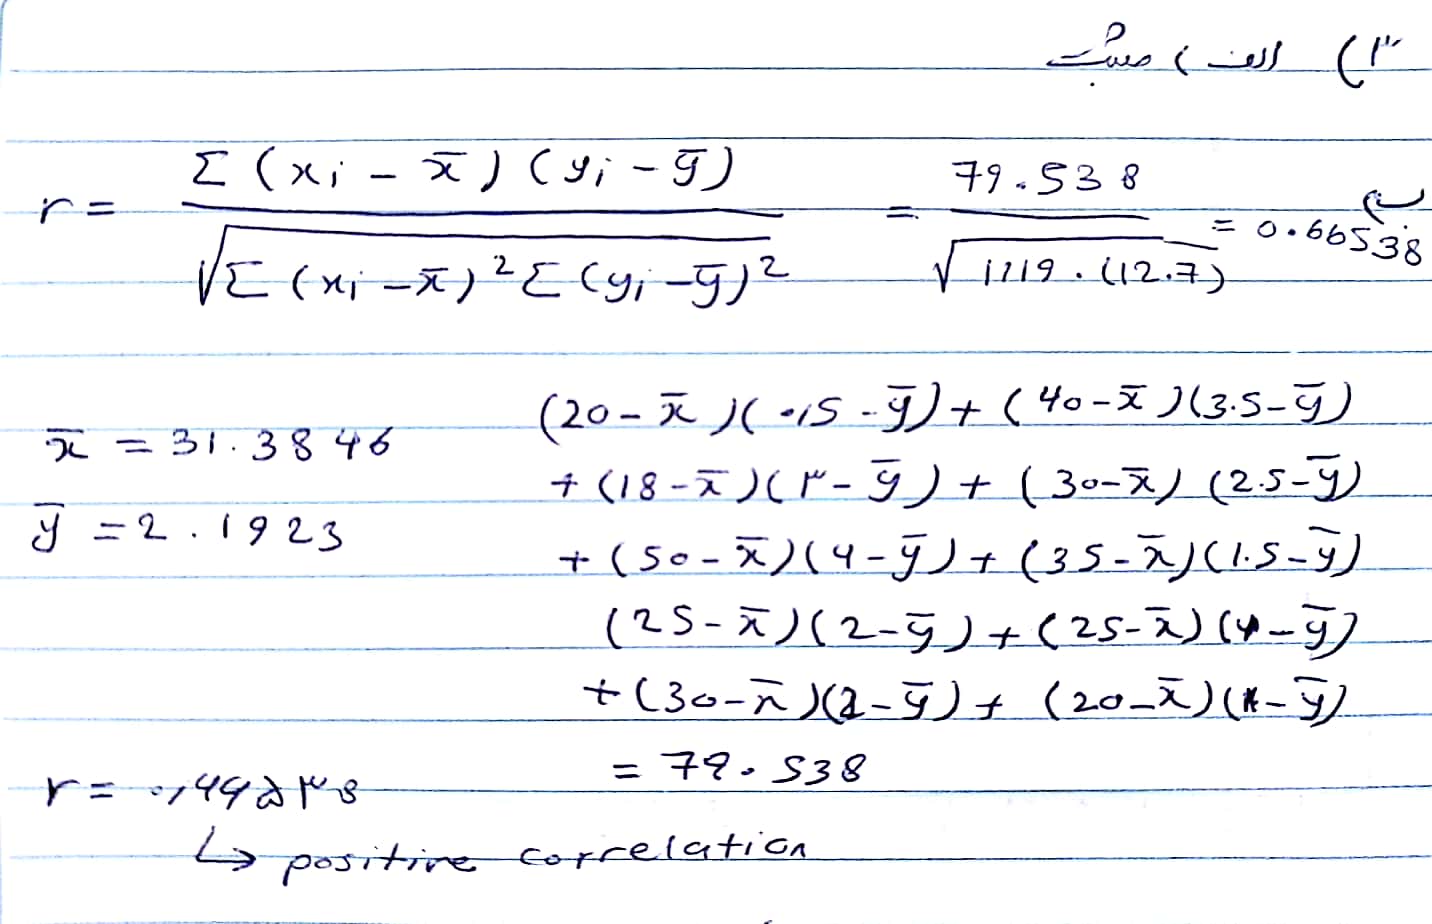 ۳) الف) مثبت
r = Σ(xi - x̄)(yi - ȳ) / √Σ(xi - x̄)² Σ(yi - ȳ)² = 79.538 / √1119.(12.7) = 0.66538
x̄ = 31.3846
ȳ = 2.1923
(20 - x̄)(.15 - ȳ) + (40 - x̄)(3.5 - ȳ)
+ (18 - x̄)(۳ - ȳ) + (30 - x̄)(2.5 - ȳ)
+ (50 - x̄)(4 - ȳ) + (35 - x̄)(1.5 - ȳ)
(25 - x̄)(2 - ȳ) + (25 - x̄)( - ȳ)
+ (30 - x̄)( - ȳ) + (20 - x̄)( - ȳ)
= 79.538
r = ۰,۶۶۵۳8
↳ positive correlation